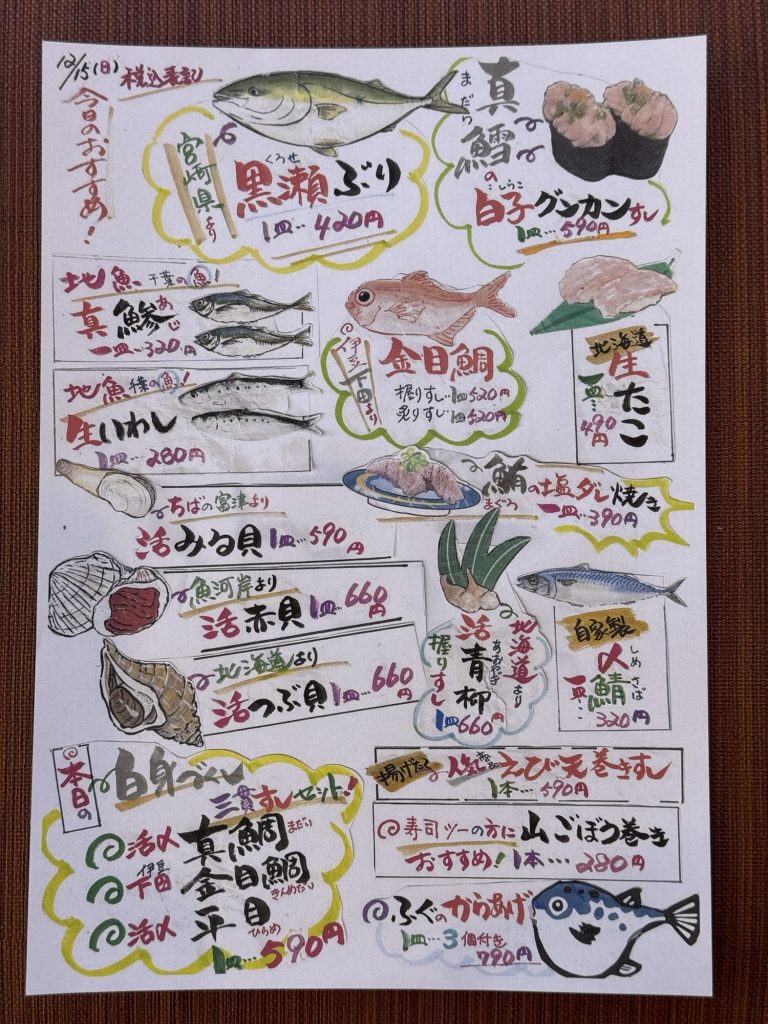 12/15(日) 税込表記
今日のおすすめ!
宮崎県より
くろせ
黒瀬ぶり
1皿…420円
まだら
真鱈の
しらこ
白子グンカンすし
1皿…590円
地魚 千葉の魚!
真鯵
あじ
一皿…320円
地魚 千葉の魚!
生いわし
1皿…280円
伊豆下田より
金目鯛
握りすし…1皿520円
炙りすし…1皿520円
北海道
生たこ
一皿…490円
鮪の塩ダレ焼き
まぐろ
一皿…390円
ちばの富津より
活みる貝 1皿…590円
魚河岸より
活赤貝 1皿…660円
北海道より
活つぶ貝 1皿…660円
北海道より
活青柳
あおやぎ
握りすし
1皿660円
自家製
〆鯖
しめさば
一皿…320円
本日の
白身づくし
三貫すしセット!
活〆 真鯛 まだい
伊豆下田 金目鯛 きんめだい
活〆 平目 ひらめ
1皿…590円
揚げたて 人気商品 えび天巻きすし
1本…590円
寿司ツーの方に 山ごぼう巻き
おすすめ! 1本…280円
ふぐのからあげ
1皿…3個付き
790円